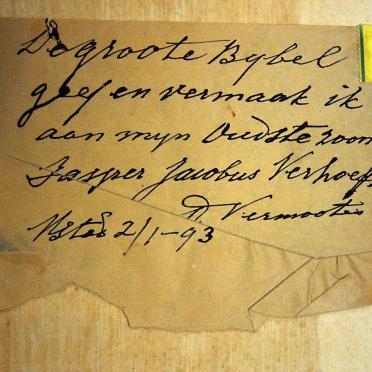 De groote Bybel
geef en vermaak ik
aan myn Oudste zoon
Jasper Jacobus Verhoeff
D Vermooten
2/1-93